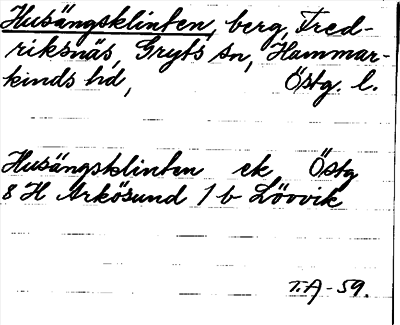 Husängsklinten, berg, Fred-
riksnäs, Gryts sn, Hammar-
kinds hd, Östg. l.
Husängsklinten ek Östg
8 H Arkösund 1 b Lövvik
T.A-59.